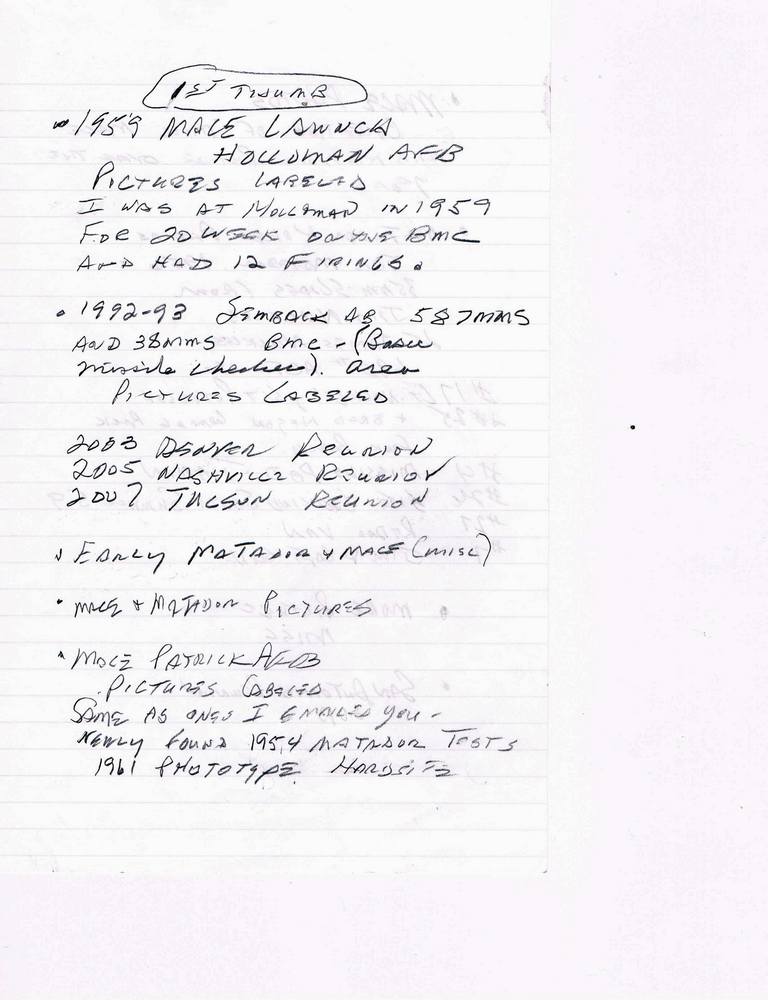 1ST THUMB
• 1959 MACE LAUNCH
HOLLOMAN AFB
PICTURES LABELED
I WAS AT HOLLOMAN IN 1959
FOR 20 WEEK ON THE BMC
AND HAD 12 FIRINGS.
• 1992-93 SEMBACK AB 587MMS
AND 38MMS BMC - (Basic
missile checker). area
PICTURES LABELED
2003 DENVER REUNION
2005 NASHVILLE REUNION
2007 TUCSON REUNION
• EARLY MATADOR & MACE (MISC)
• MACE & MATADOR PICTURES
• MACE PATRICK AFB
PICTURES LABELED
SAME AS ONES I EMAILED YOU -
NEWLY FOUND 1954 MATADOR TESTS
1961 PHOTOTYPE HARDSITE